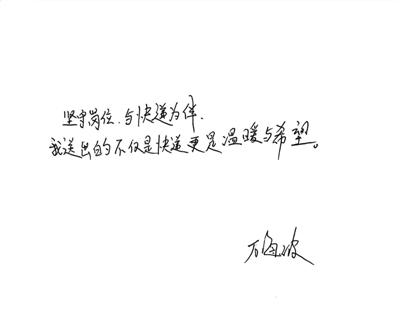 坚守岗位、与快递为伴.
我送出的不仅是快递更是温暖与希望。
石海波